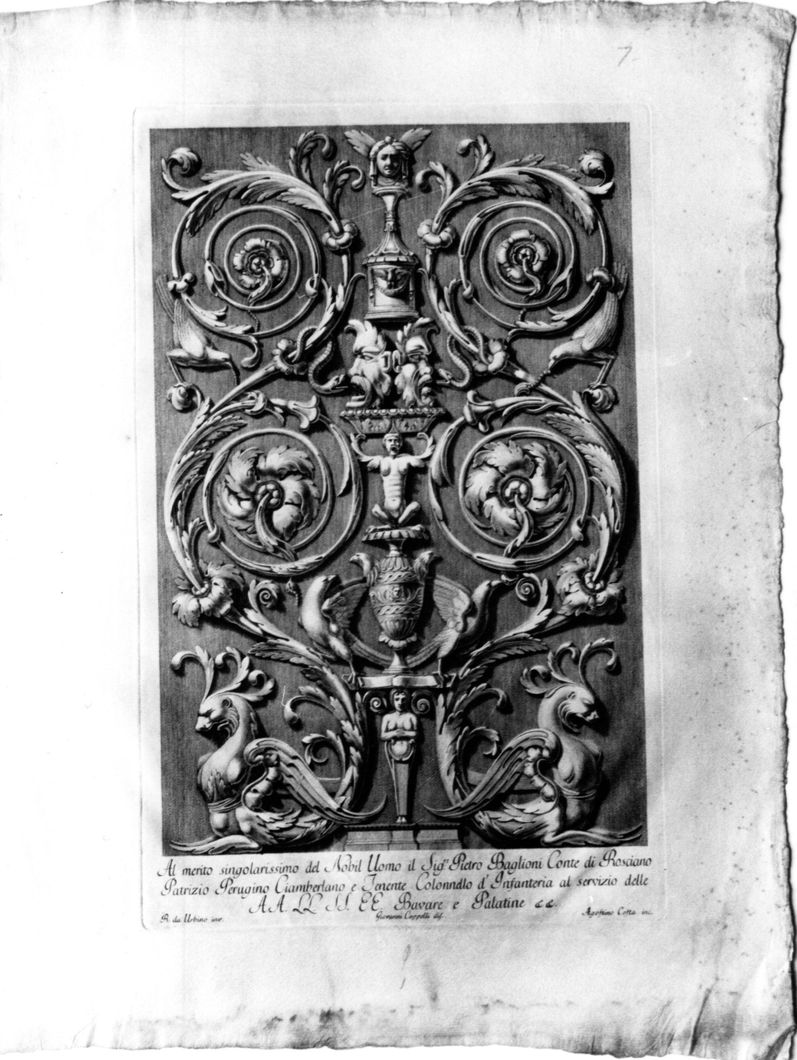 7.
Al merito singolarissimo del Nobil Uomo il Sig.r Pietro Baglioni Conte di Rosciano
Patrizio Perugino Ciamberlano e Tenente Colonnello d'Infanteria al servizio delle
AA. LL. SS. EE. Bavare e Palatine &c.
R. da Urbino inv.
Giovanni Cappelli dis.
Agostino Costa inc.